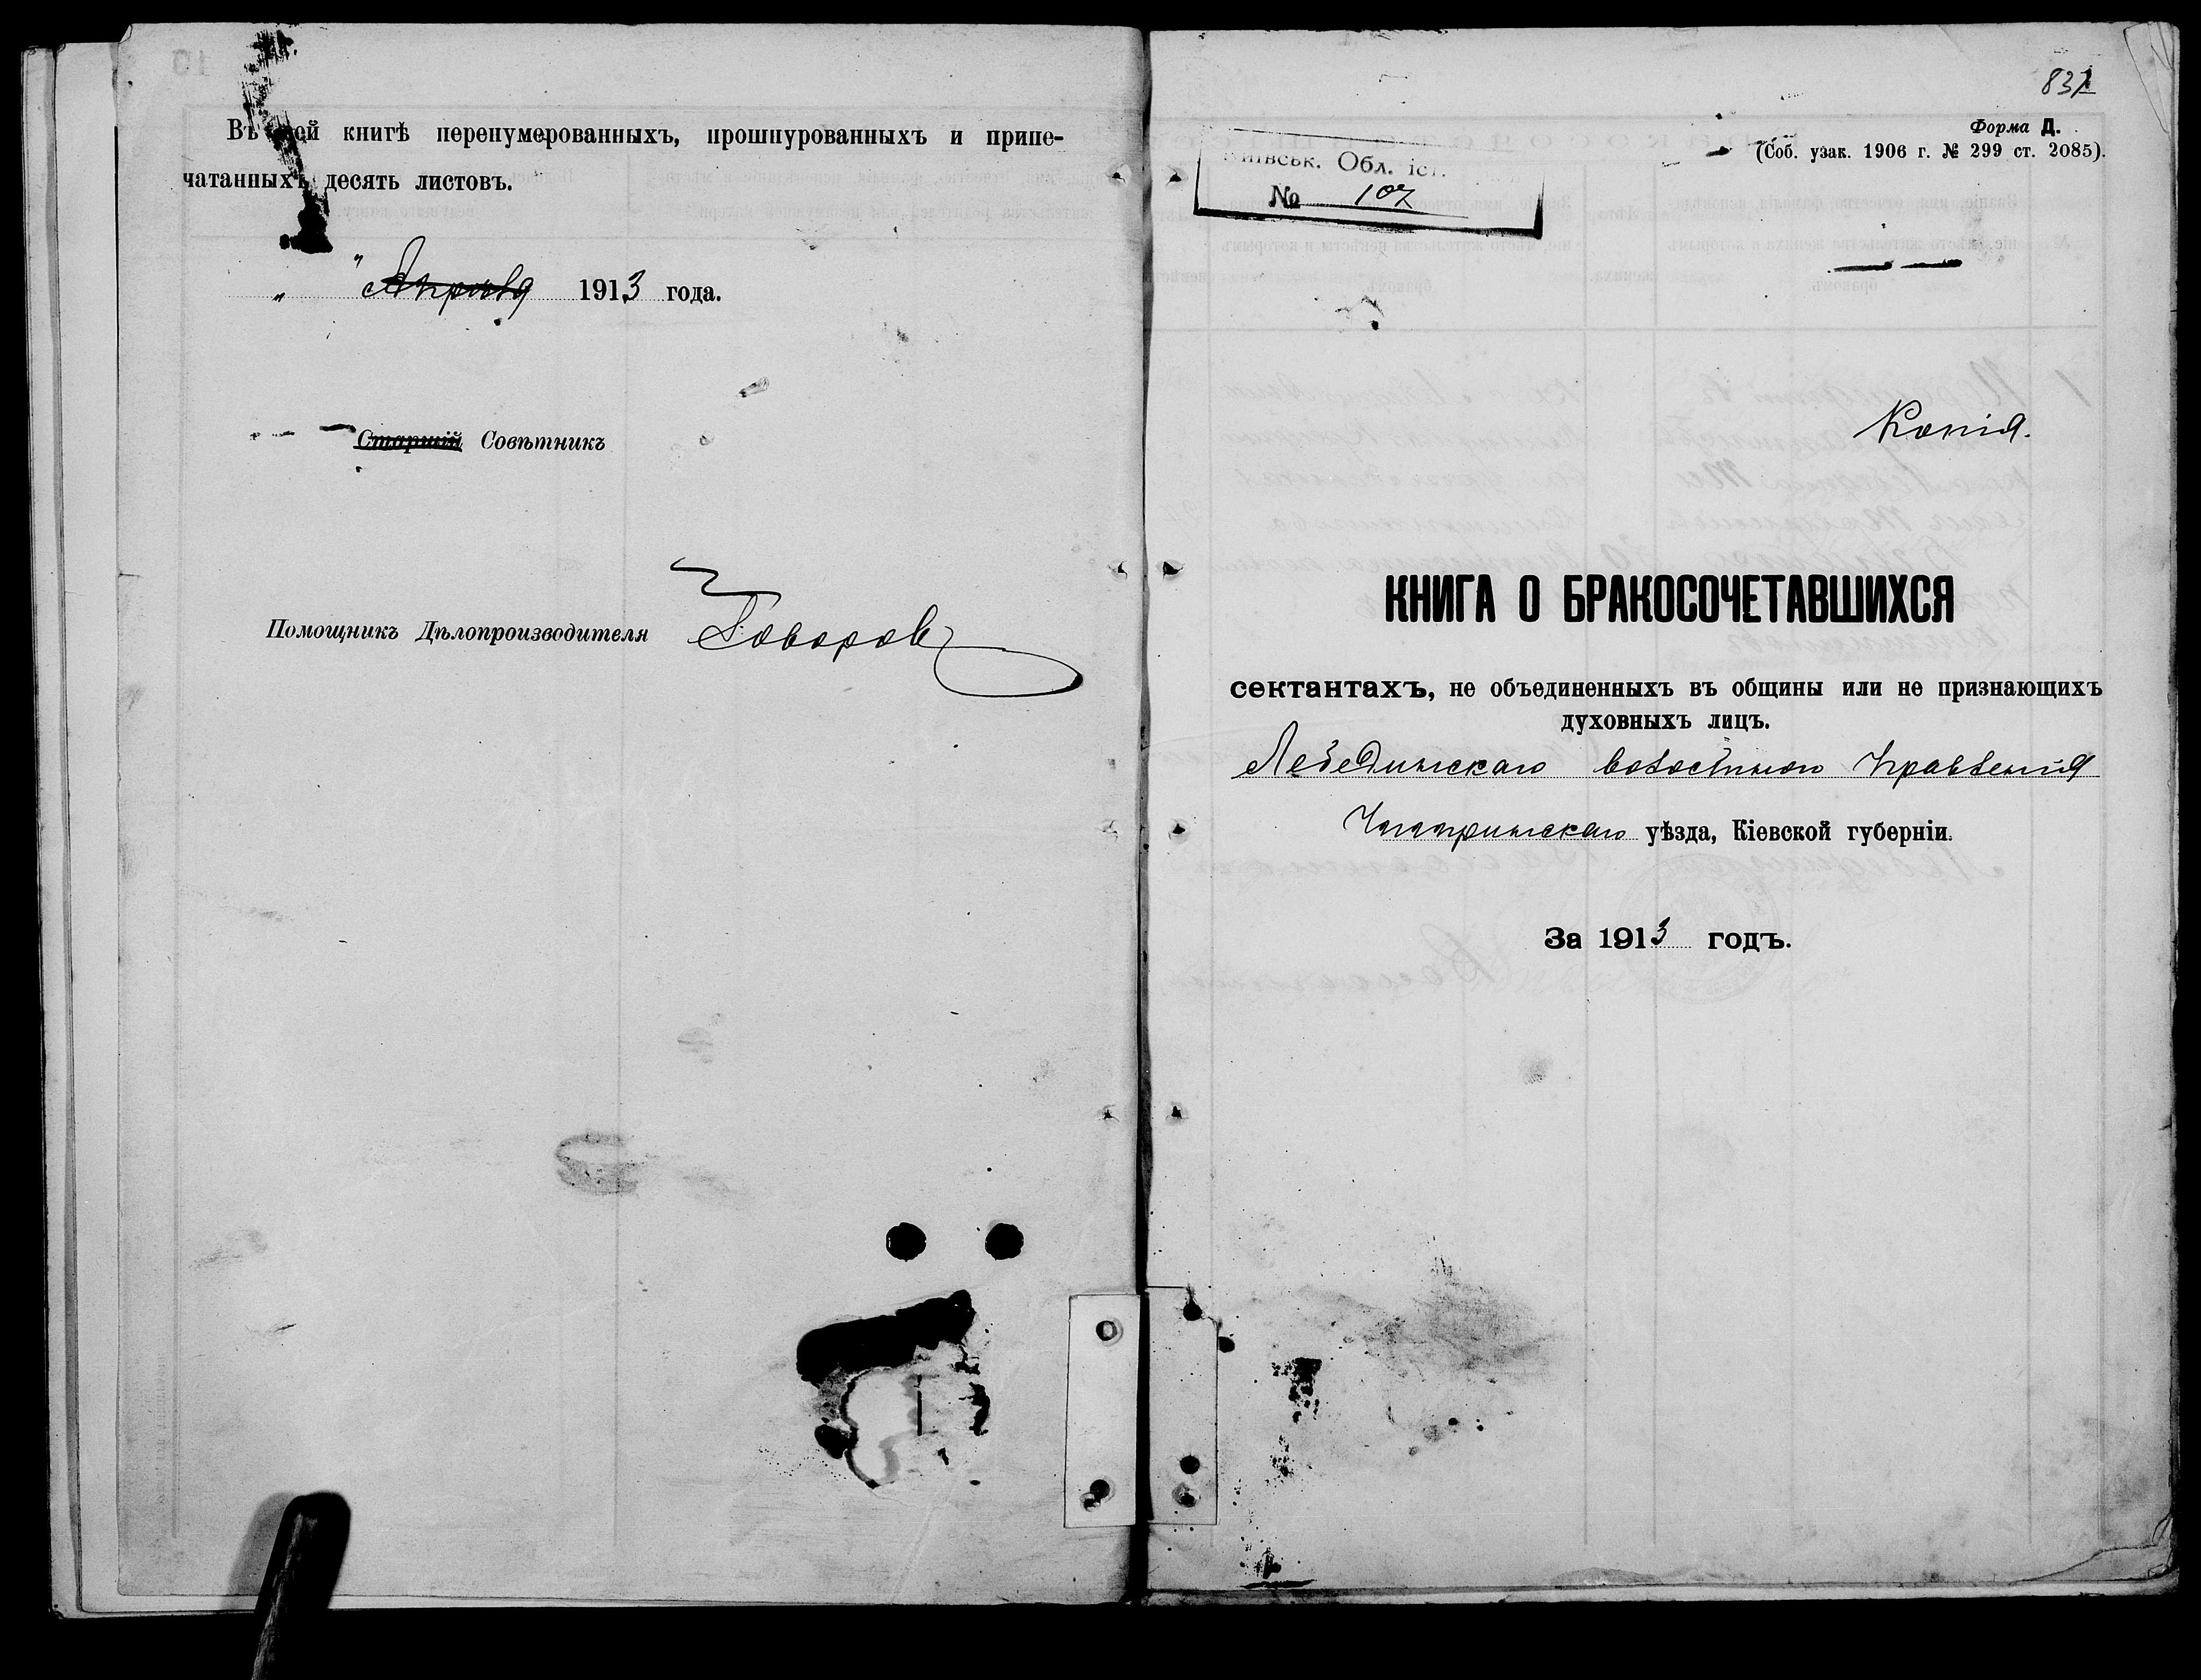 Въ сей книгѣ перенумерованныхъ, прошнурованныхъ и припе-
чатанныхъ десять листовъ.
„ " Апрѣля 1913 года.
Старшій Совѣтникъ
Помощникъ Дѣлопроизводителя Говоровъ
831
Форма Д.
(Соб. узак. 1906 г. № 299 ст. 2085).
Київськ. Обл. іст.
№ 107
Копія.
КНИГА О БРАКОСОЧЕТАВШИХСЯ
сектантахъ, не объединенныхъ въ общины или не признающихъ
духовныхъ лицъ.
Лебединскаго волостного Правленія
Чигиринскаго уѣзда, Кіевской губерніи.
За 1913 годъ.